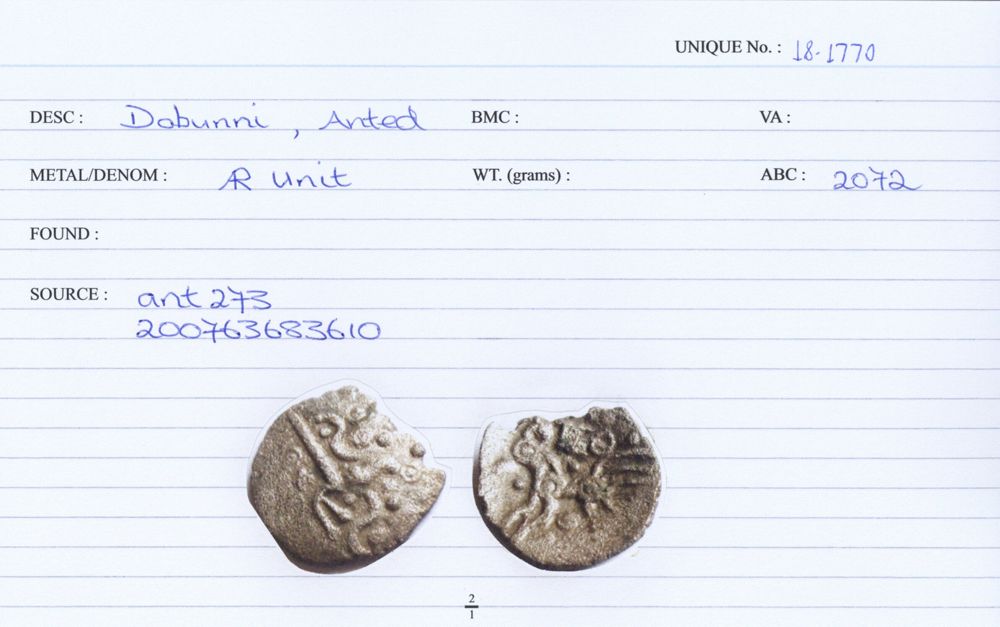 UNIQUE No. : 18-1770
DESC : Dobunni, Anted BMC : VA :
METAL/DENOM : AR Unit WT. (grams) : ABC : 2072
FOUND :
SOURCE : ant 273
200763683610
2
1